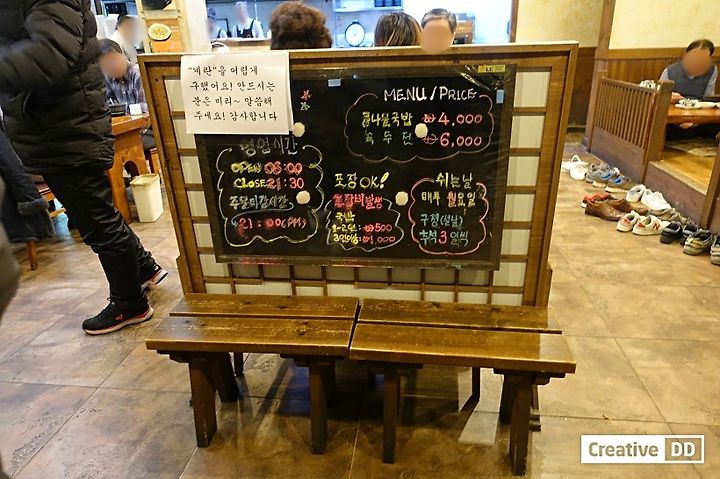 "계란"을 어렵게
구했어요! 안드시는
분은 미리~ 말씀해
주세요! 감사합니다
MENU/PRICE
콩나물국밥 ₩4,000
녹두전 ₩6,000
영업시간
OPEN 06:00
CLOSE 21:30
주문마감시간
21:00(PM)
포장OK!
포장비발생
국밥
1~2인 ₩500
3인이상 ₩1,000
쉬는날
매주 월요일
구정(설날)
추석 3일씩
Creative DD